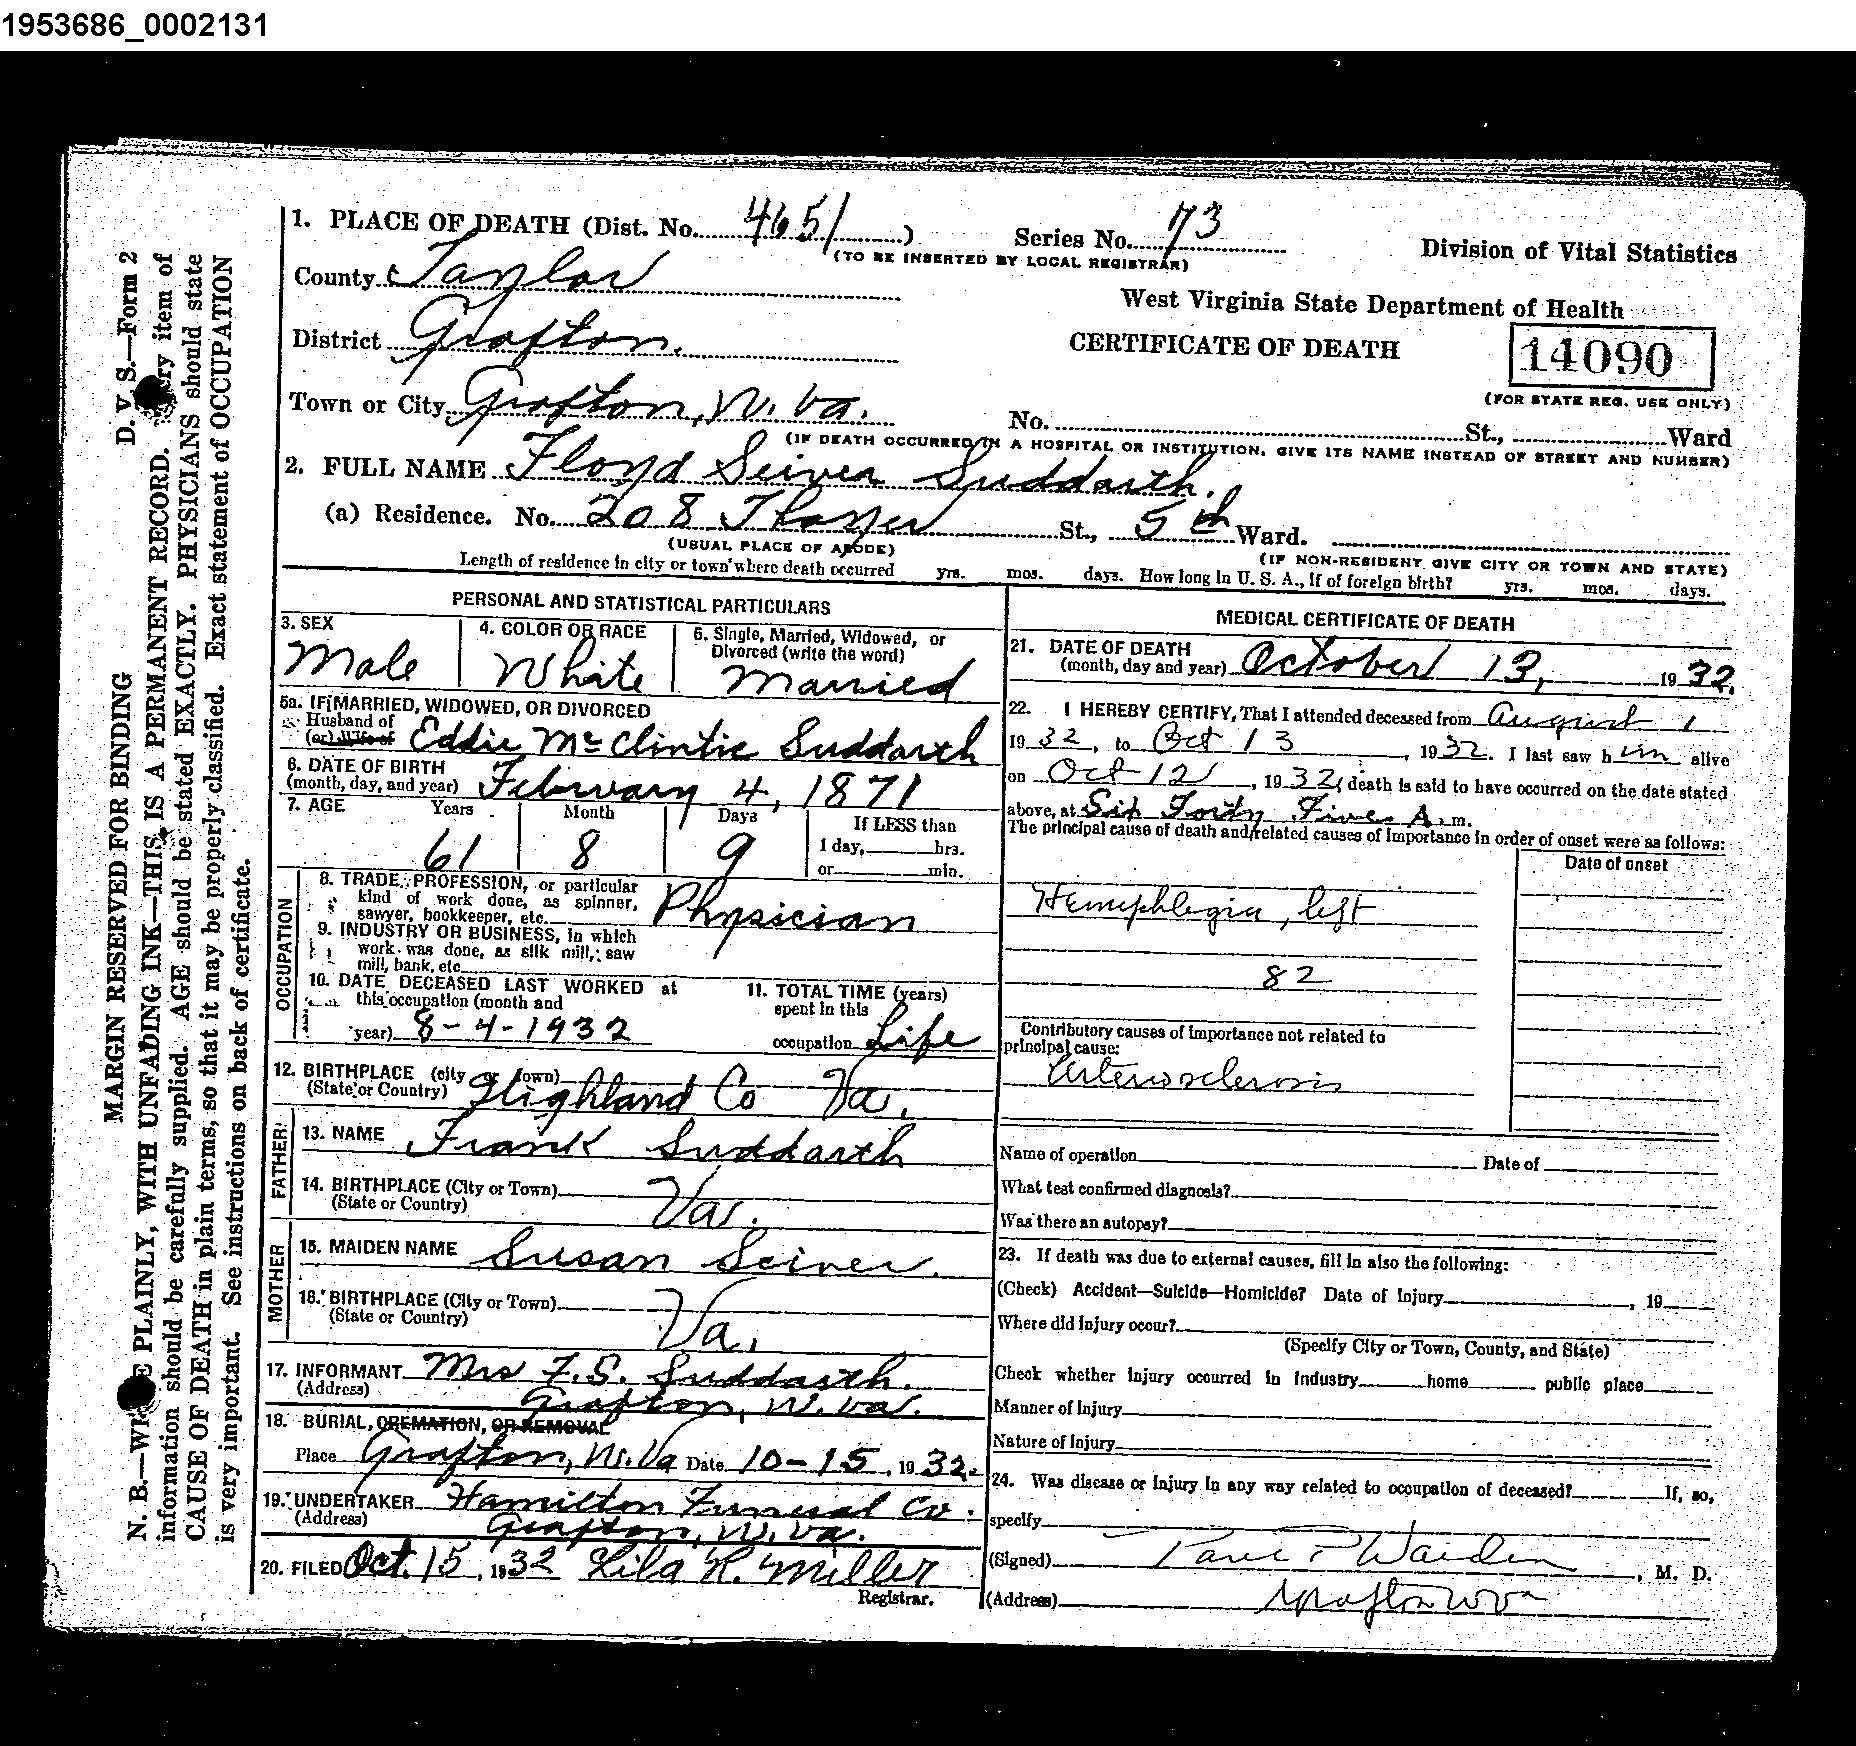 1953686_0002131
1. PLACE OF DEATH (Dist. No. 4651 )
Series No. 73
(TO BE INSERTED BY LOCAL REGISTRAR)
Division of Vital Statistics
County Taylor
West Virginia State Department of Health
District Grafton.
CERTIFICATE OF DEATH
14090
(FOR STATE REG. USE ONLY)
Town or City Grafton, W. Va.
No. St., Ward
(IF DEATH OCCURRED IN A HOSPITAL OR INSTITUTION, GIVE ITS NAME INSTEAD OF STREET AND NUMBER)
2. FULL NAME Floyd Seiver Suddarth.
(a) Residence. No. 208 Thayer St., 5th Ward.
(USUAL PLACE OF ABODE)
(IF NON-RESIDENT GIVE CITY OR TOWN AND STATE)
Length of residence in city or town where death occurred yrs. mos. days. How long in U. S. A., if of foreign birth? yrs. mos. days.
PERSONAL AND STATISTICAL PARTICULARS
3. SEX
Male
4. COLOR OR RACE
White
5. Single, Married, Widowed, or
Divorced (write the word)
Married
5a. IF MARRIED, WIDOWED, OR DIVORCED
Husband of
(or) Wife of Eddie McClintic Suddarth
6. DATE OF BIRTH
(month, day, and year) February 4, 1871
7. AGE Years Month Days
61 8 9
If LESS than
1 day, hrs.
or min.
OCCUPATION
8. TRADE, PROFESSION, or particular
kind of work done, as spinner,
sawyer, bookkeeper, etc. Physician
9. INDUSTRY OR BUSINESS, in which
work was done, as silk mill, saw
mill, bank, etc.
10. DATE DECEASED LAST WORKED at
this occupation (month and
year) 8-4-1932
11. TOTAL TIME (years)
spent in this
occupation Life
12. BIRTHPLACE (city or town)
(State or Country) Highland Co Va.
FATHER
13. NAME Frank Suddarth
14. BIRTHPLACE (City or Town)
(State or Country) Va.
MOTHER
15. MAIDEN NAME Susan Seiver.
16. BIRTHPLACE (City or Town)
(State or Country) Va.
17. INFORMANT Mrs F. S. Suddarth.
(Address) Grafton, W. Va.
18. BURIAL, CREMATION, OR REMOVAL
Place Grafton, W. Va Date 10-15, 1932.
19. UNDERTAKER Hamilton Funeral Co.
(Address) Grafton, W. Va.
20. FILED Oct. 15, 1932 Lila R. Miller
Registrar.
MEDICAL CERTIFICATE OF DEATH
21. DATE OF DEATH
(month, day and year) October 13, 1932.
22. I HEREBY CERTIFY, That I attended deceased from August 1
1932, to Oct 13, 1932. I last saw him alive
on Oct 12, 1932, death is said to have occurred on the date stated
above, at Six Forty Five A. m.
The principal cause of death and related causes of importance in order of onset were as follows:
Date of onset
Hemiphlegia, left
82
Contributory causes of importance not related to
principal cause:
Arteriosclerosis
Name of operation Date of
What test confirmed diagnosis?
Was there an autopsy?
23. If death was due to external causes, fill in also the following:
(Check) Accident—Suicide—Homicide? Date of injury , 19
Where did injury occur?
(Specify City or Town, County, and State)
Check whether injury occurred in industry home public place
Manner of Injury
Nature of Injury
24. Was disease or injury in any way related to occupation of deceased? If, so,
specify
(Signed) Warden, M. D.
(Address) Grafton W Va
MARGIN RESERVED FOR BINDING D. V. S.—Form 2
N. B.—WRITE PLAINLY, WITH UNFADING INK—THIS IS A PERMANENT RECORD. Every item of
information should be carefully supplied. AGE should be stated EXACTLY. PHYSICIANS should state
CAUSE OF DEATH in plain terms, so that it may be properly classified. Exact statement of OCCUPATION
is very important. See instructions on back of certificate.